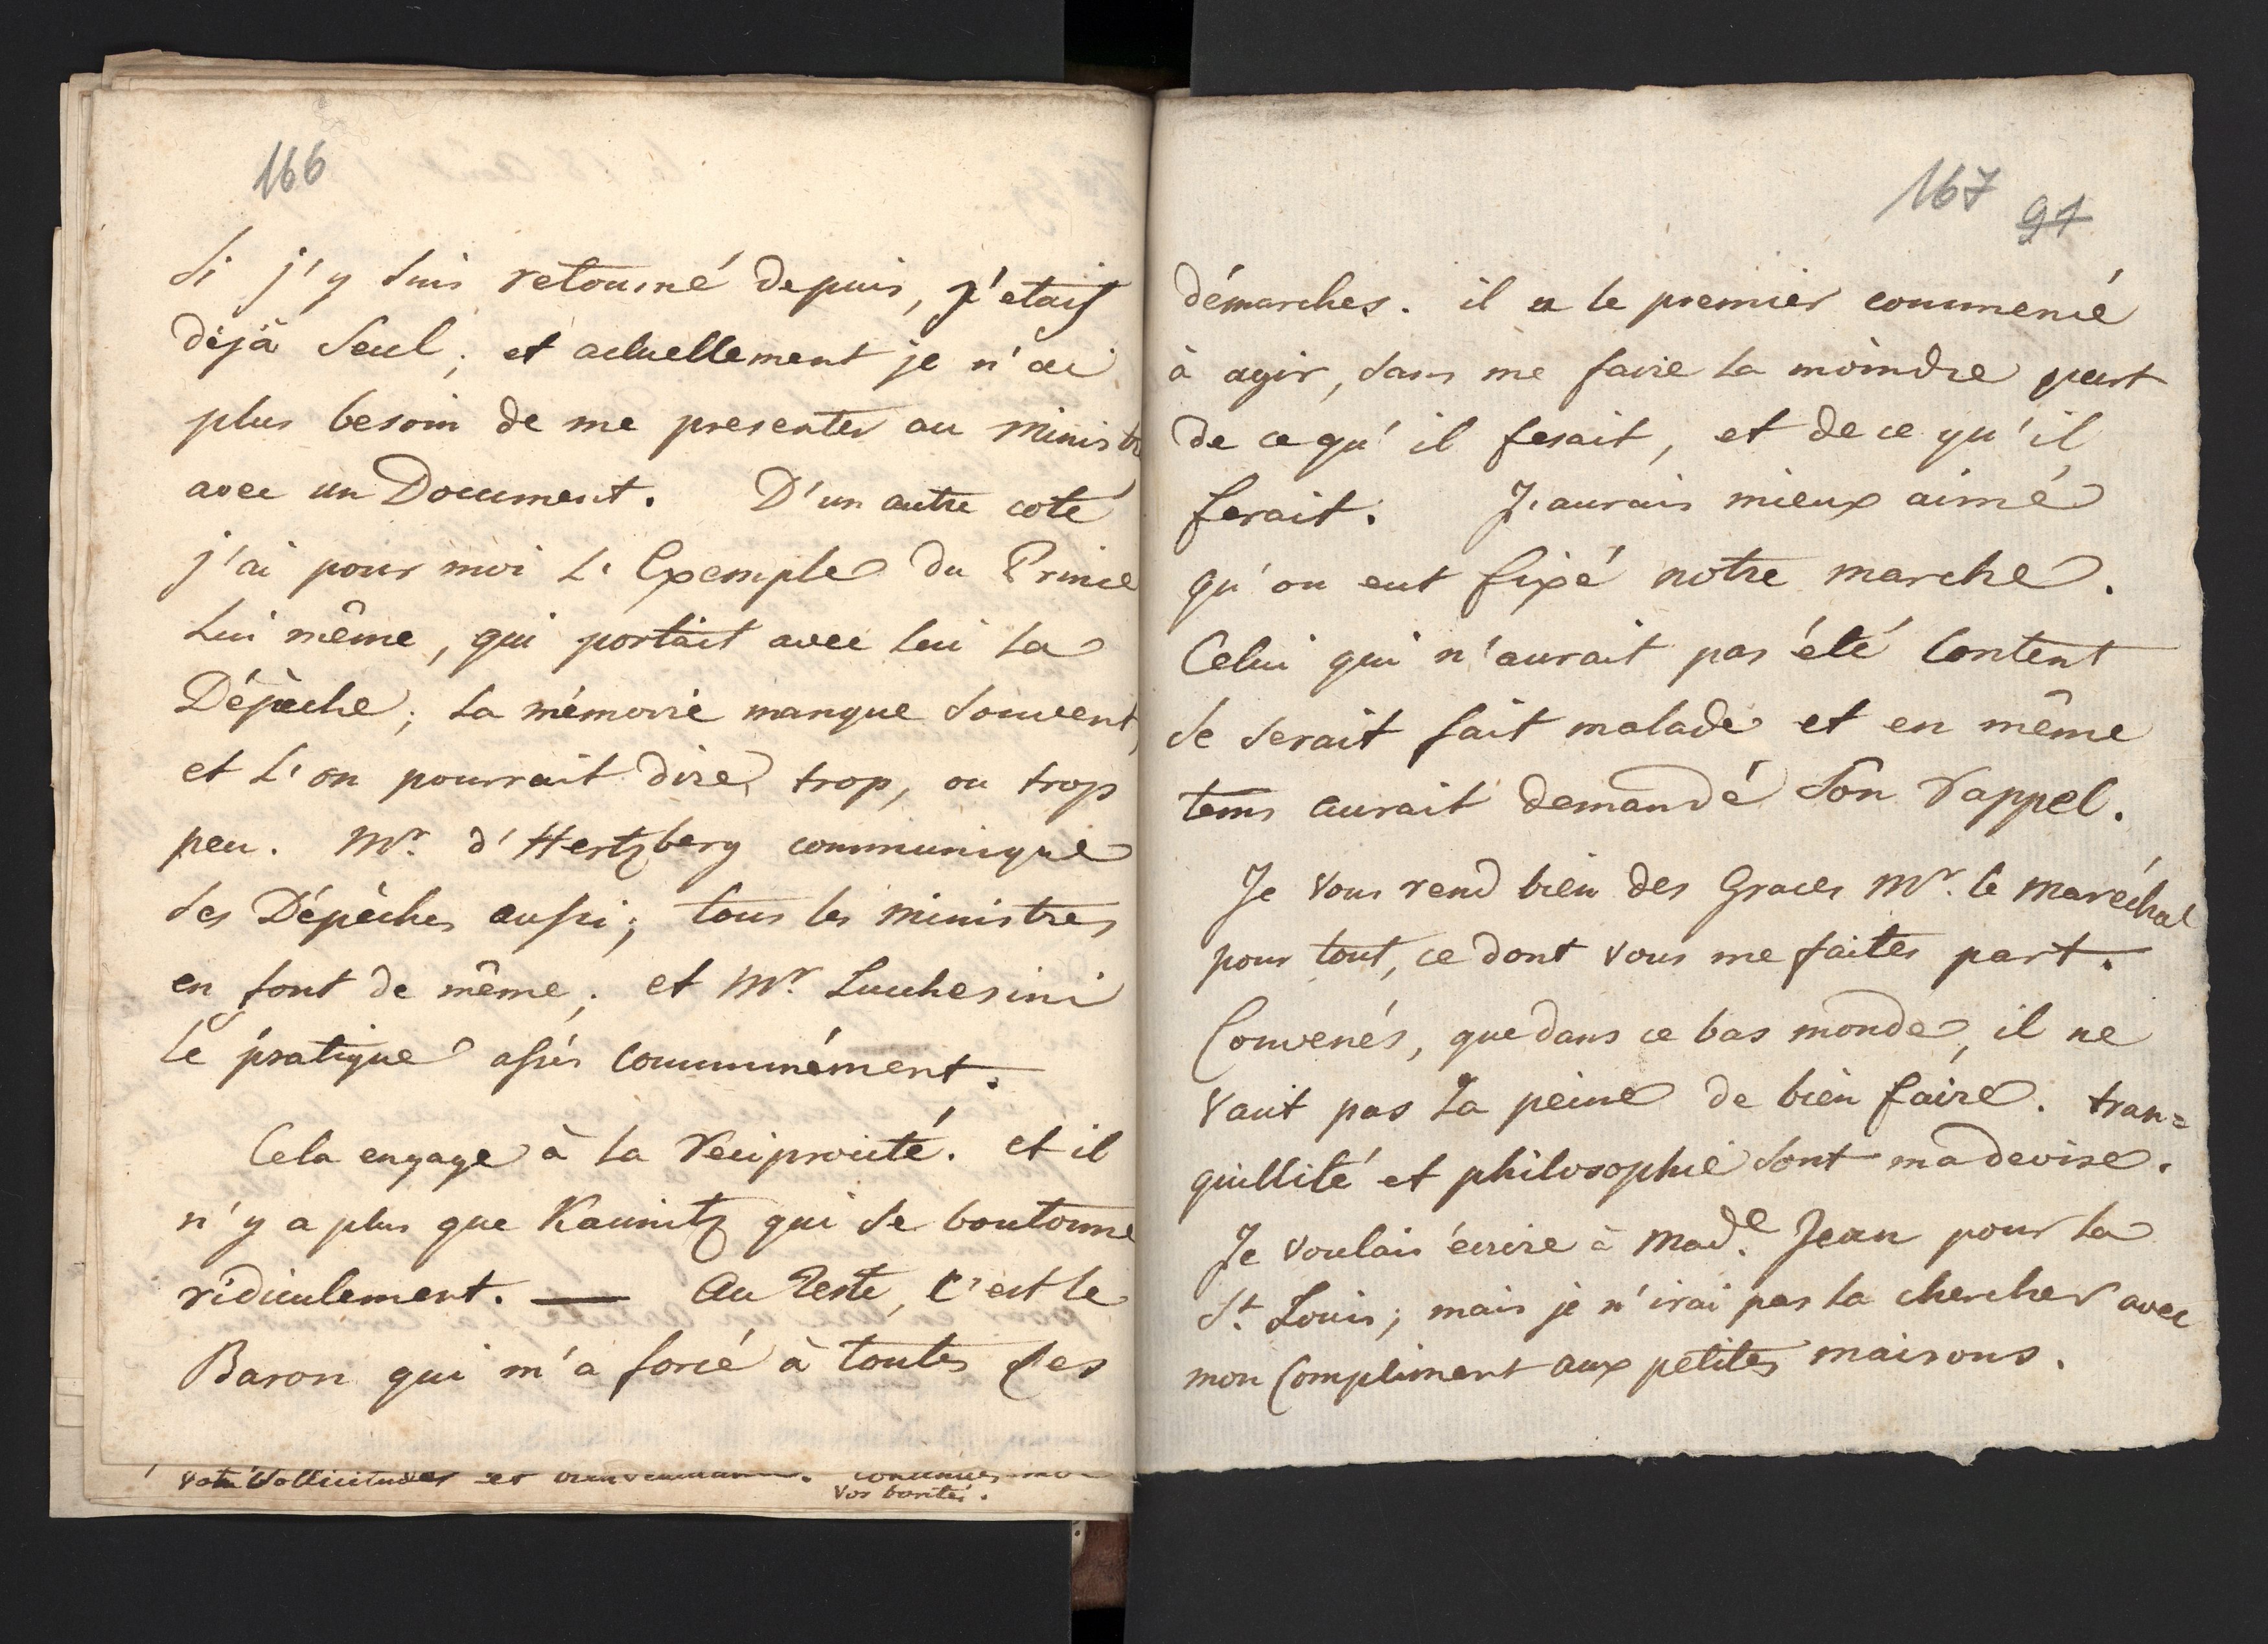 166
Si j'y suis retourné depuis, j'etais
déjà Seul; et actuellement je n'ai
plus besoin de me presenter au Ministr
avec un Document. D'un autre coté
j'ai pour moi L'Exemple du Prince
Lui même, qui portait avec lui La
Dépèche; La mémoire manque Souvent,
et L'on pourrait dire trop, ou trop
peu. Mr. d'Hertzberg communique
Ses Dépèches aussi; tous les Ministres
en font de même; et Mr. Lucchesini
le pratique assés Communément.
Cela engage à La Reciprocité. et il
n'y a plus que Kaunitz qui Se boutonne
ridiculement. — Au Reste, C'est le
Baron qui m'a forcé à toutes ces
vos bontés.
167 91
démarches. il a le premier commencé
à agir, Sans me faire La moindre part
de ce qu'il fesait, et de ce qu'il
ferait. J'aurais mieux aimé
qu'on eut fixé notre marche.
Celui qui n'aurait pas été Content
Se Serait fait malade et en même
tems aurait demandé Son rappel.
Je Vous rend bien des Graces Mr. le Maréchal
pour tout, ce dont Vous me faites part.
Convenés, que dans ce bas monde, il ne
Vaut pas La peine de bien faire. tran=
quillité et philosophie Sont ma devise.
Je Voulais écrire à Made. Jean pour La
St. Louis; mais je n'irai pas La chercher avec
mon Compliment aux petites maisons.